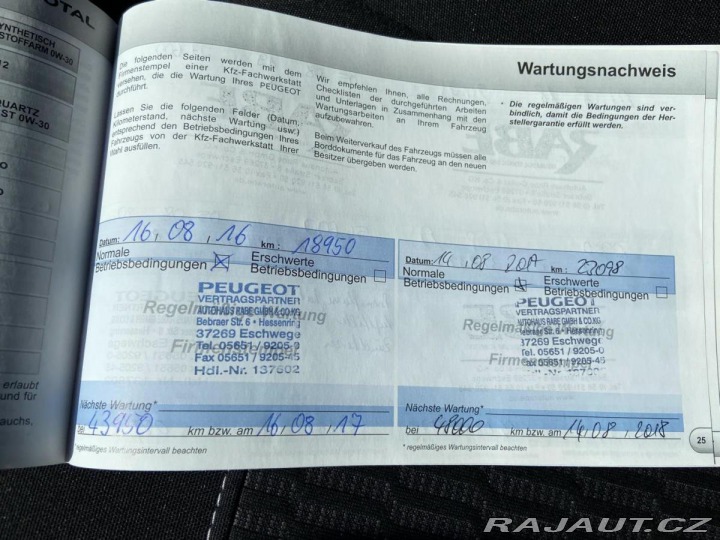 OTAL
YNTHETISCH
STOFFARM 0W-30
12
QUARTZ
EST 0W-30
erlaubt
und für
auchs.
Wartungsnachweis
Die folgenden Seiten werden mit dem
Firmenstempel einer Kfz-Fachwerkstatt
versehen, die die Wartung Ihres PEUGEOT
durchführt.
Lassen Sie die folgenden Felder (Datum,
Kilometerstand, nächste Wartung usw.)
entsprechend den Betriebsbedingungen Ihres
Fahrzeugs von der Kfz-Fachwerkstatt Ihrer
Wahl ausfüllen.
Wir empfehlen Ihnen, alle Rechnungen,
Checklisten der durchgeführten Arbeiten
und Unterlagen in Zusammenhang mit den
Wartungsarbeiten an Ihrem Fahrzeug
aufzubewahren.
Beim Weiterverkauf des Fahrzeugs müssen alle
Borddokumente für das Fahrzeug an den neuen
Besitzer übergeben werden.
* Die regelmäßigen Wartungen sind ver-
bindlich, damit die Bedingungen der Her-
stellergarantie erfüllt werden.
Datum: 16, 08, 16 km: 18950
Normale
Betriebsbedingungen
Erschwerte
Betriebsbedingungen
PEUGEOT
VERTRAGSPARTNER
AUTOHAUS RABE GMBH & CO.KG
Bebraer Str. 6 • Hessenring
37269 Eschwege
Tel. 05651 / 9205-0
Fax 05651 / 9205-45
Hdl.-Nr. 137602
Nächste Wartung*
bei 43950 km bzw. am 16, 08, 17
*regelmäßiges Wartungsintervall beachten
Datum: 14, 08 km: 23098
Normale
Betriebsbedingungen
Erschwerte
Betriebsbedingungen
PEUGEOT
VERTRAGSPARTNER
AUTOHAUS RABE GMBH & CO.KG
37269 Eschwege
Tel. 05651 / 9205-0
Fax 05651 / 9205-45
Nächste Wartung*
bei 48000 km bzw. am 14, 08, 2018
* regelmäßiges Wartungsintervall beachten
25
RAJAUT.CZ